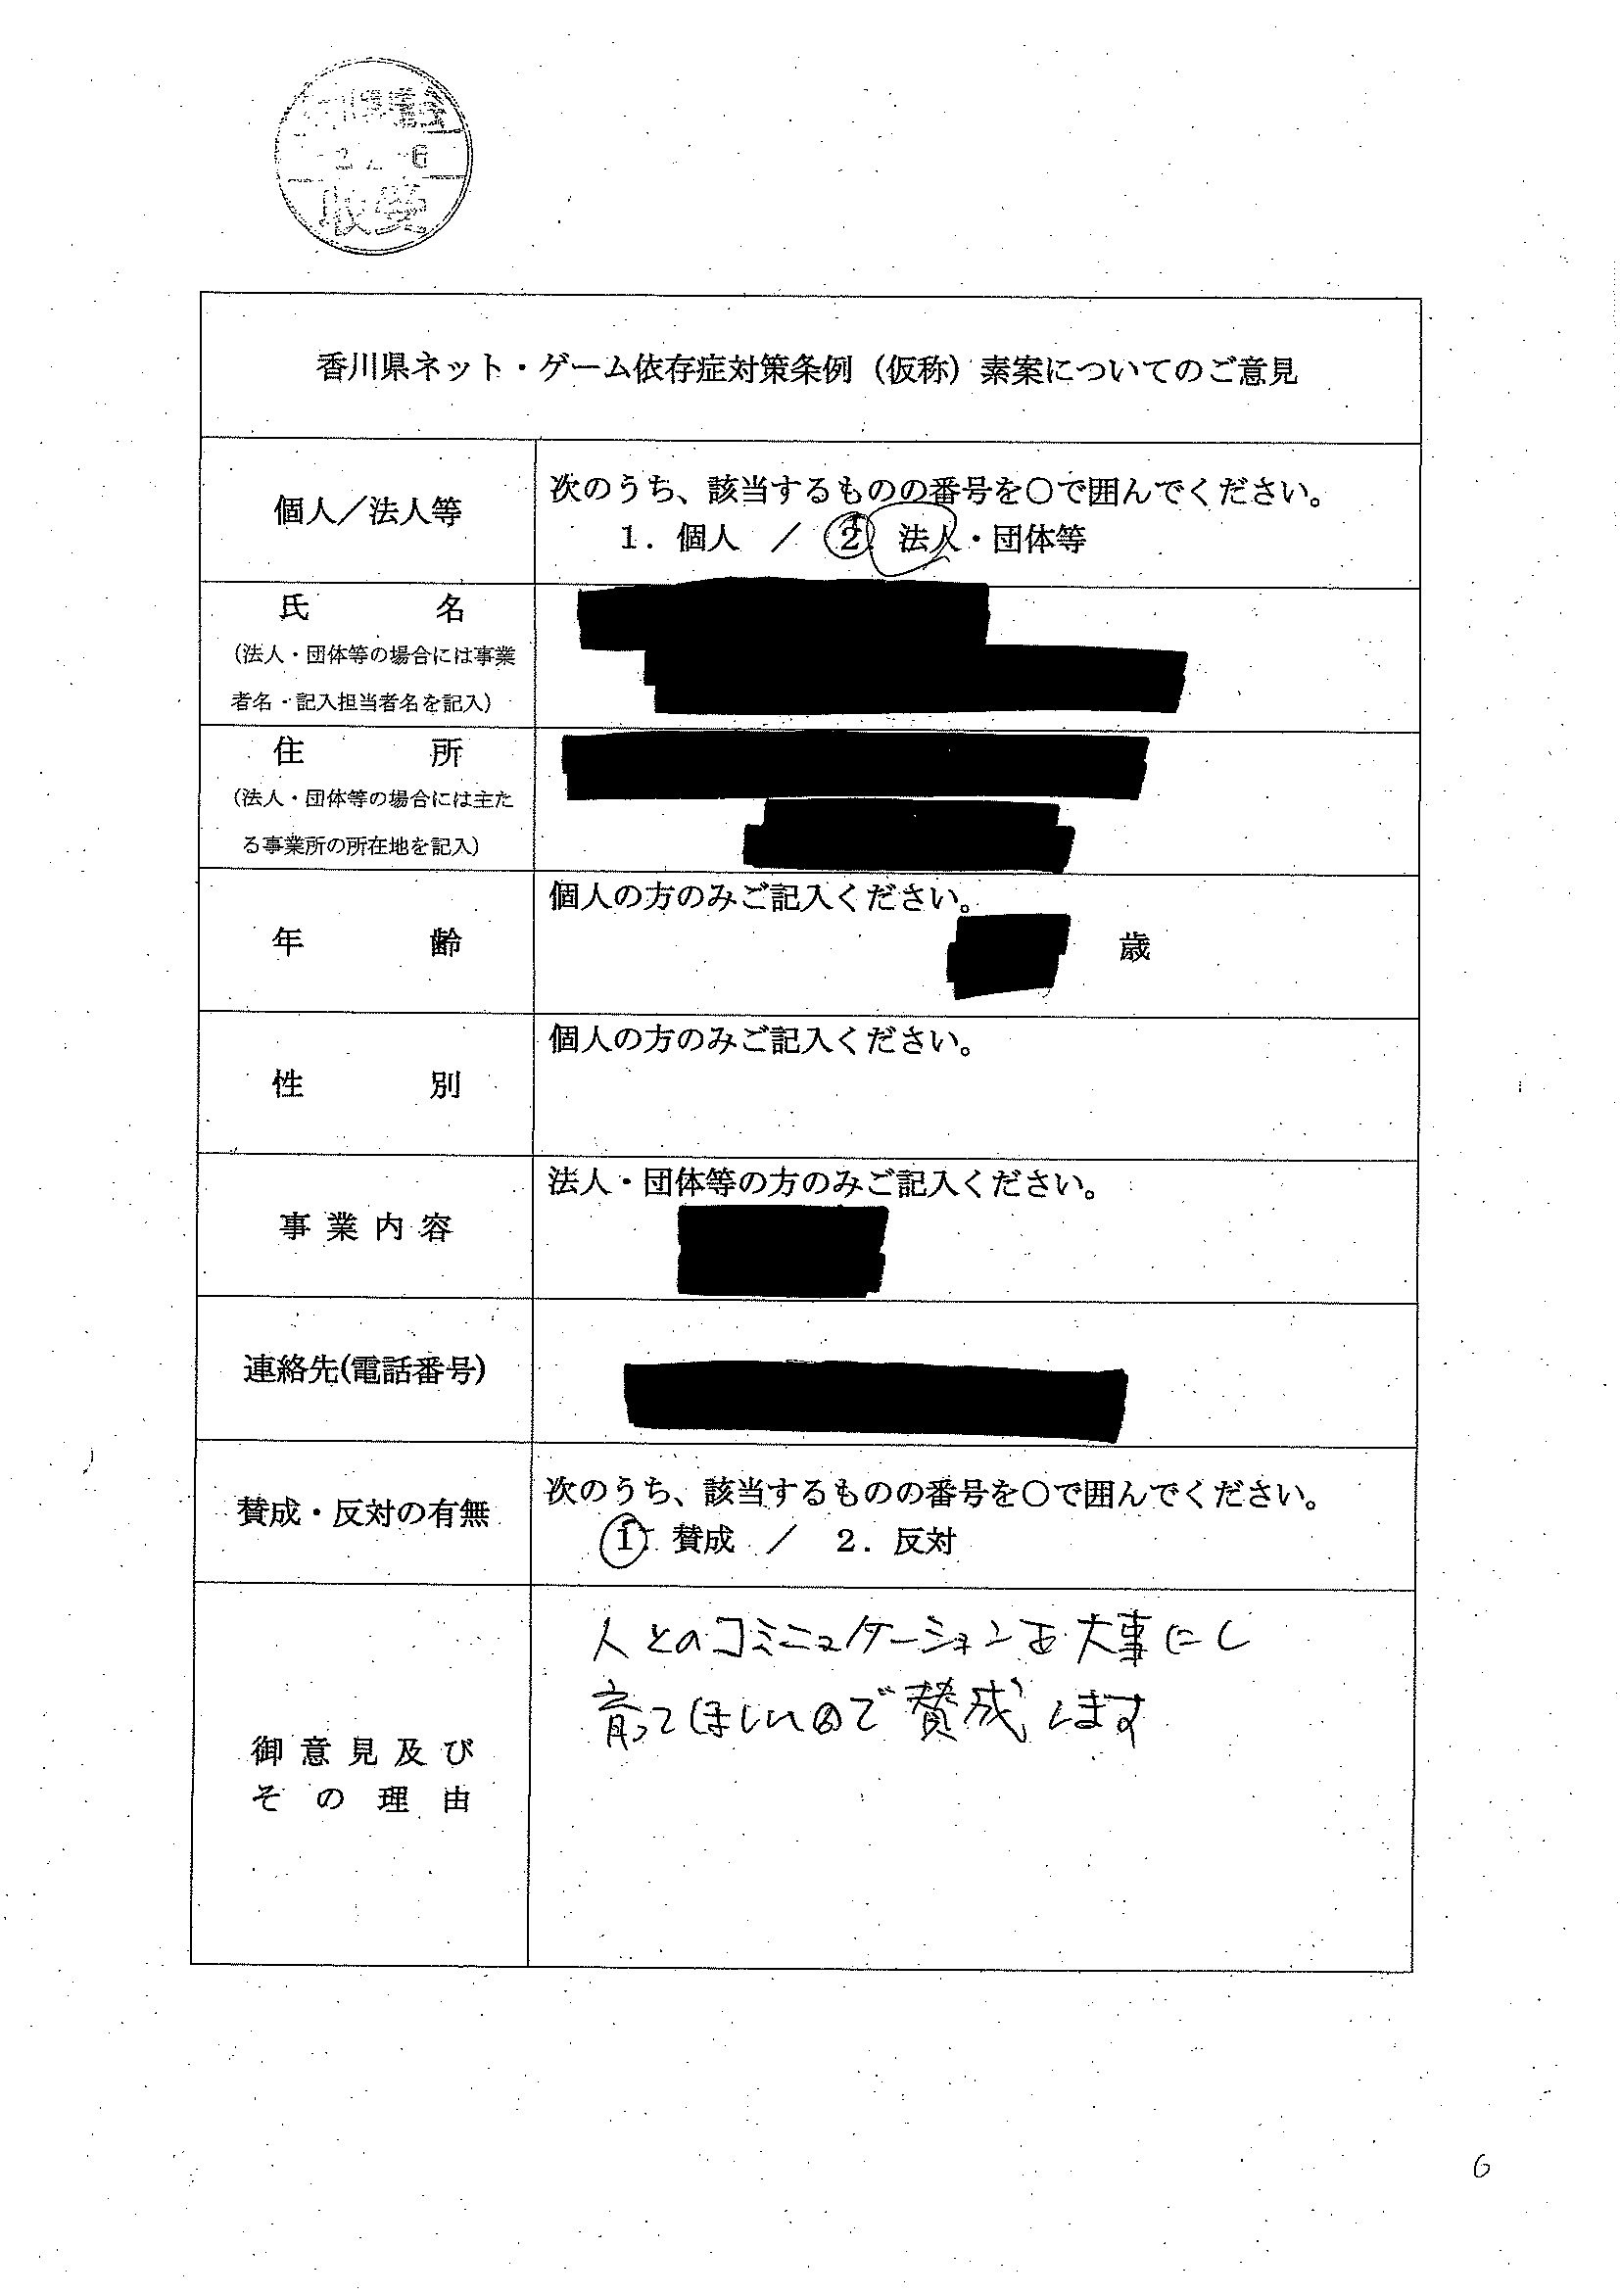 収受
香川県ネット・ゲーム依存症対策条例（仮称）素案についてのご意見
個人／法人等
次のうち、該当するものの番号を○で囲んでください。
１．個人　／　２　法人・団体等
氏　名
（法人・団体等の場合には事業
者名・記入担当者名を記入）
住　所
（法人・団体等の場合には主た
る事業所の所在地を記入）
年　齢
個人の方のみご記入ください。
歳
性　別
個人の方のみご記入ください。
事業内容
法人・団体等の方のみご記入ください。
連絡先(電話番号)
賛成・反対の有無
次のうち、該当するものの番号を○で囲んでください。
１．賛成　／　２．反対
御意見及び
その理由
人とのコミニュケーションを大事にし
育ってほしいので賛成します
6